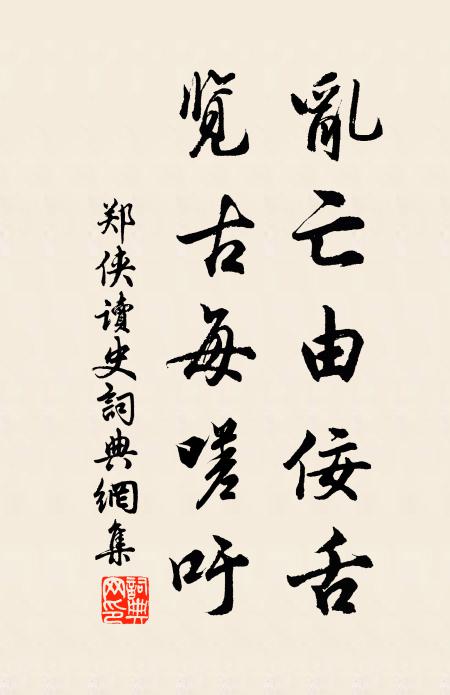 亂亡由佞舌
覽古每嗟吁
郑侠讀史詞典網集
詞典網印